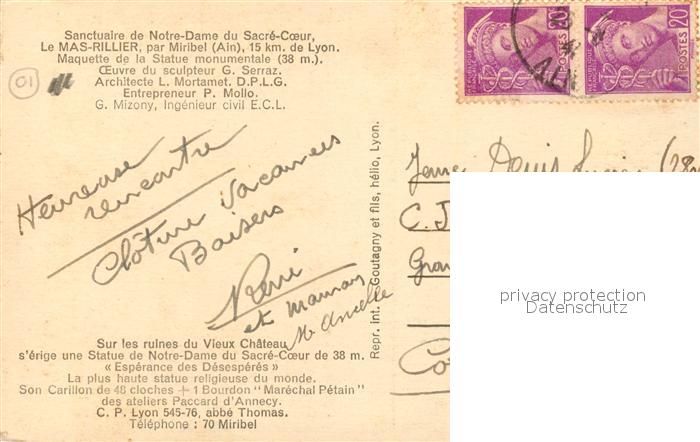 Sanctuaire de Notre-Dame du Sacré-Cœur,
Le MAS-RILLIER, par Miribel (Ain), 15 km. de Lyon.
Maquette de la Statue monumentale (38 m.).
Œuvre du sculpteur G. Serraz.
Architecte L. Mortamet. D.P.L.G.
Entrepreneur P. Mollo.
G. Mizony, Ingénieur civil E.C.L.
01
Heureuse
rencontre
Clôture Vacances
Baisers
et Maman
Sur les ruines du Vieux Château
s'érige une Statue de Notre-Dame du Sacré-Cœur de 38 m.
« Espérance des Désespérés »
La plus haute statue religieuse du monde.
Son Carillon de 48 cloches + 1 Bourdon "Maréchal Pétain"
des ateliers Paccard d'Annecy.
C. P. Lyon 545-76, abbé Thomas.
Téléphone : 70 Miribel
Repr. int. Goutagny et fils, hélio, Lyon.
20
POSTES
20
POSTES
AIN
Denis
C. J
privacy protection
Datenschutz